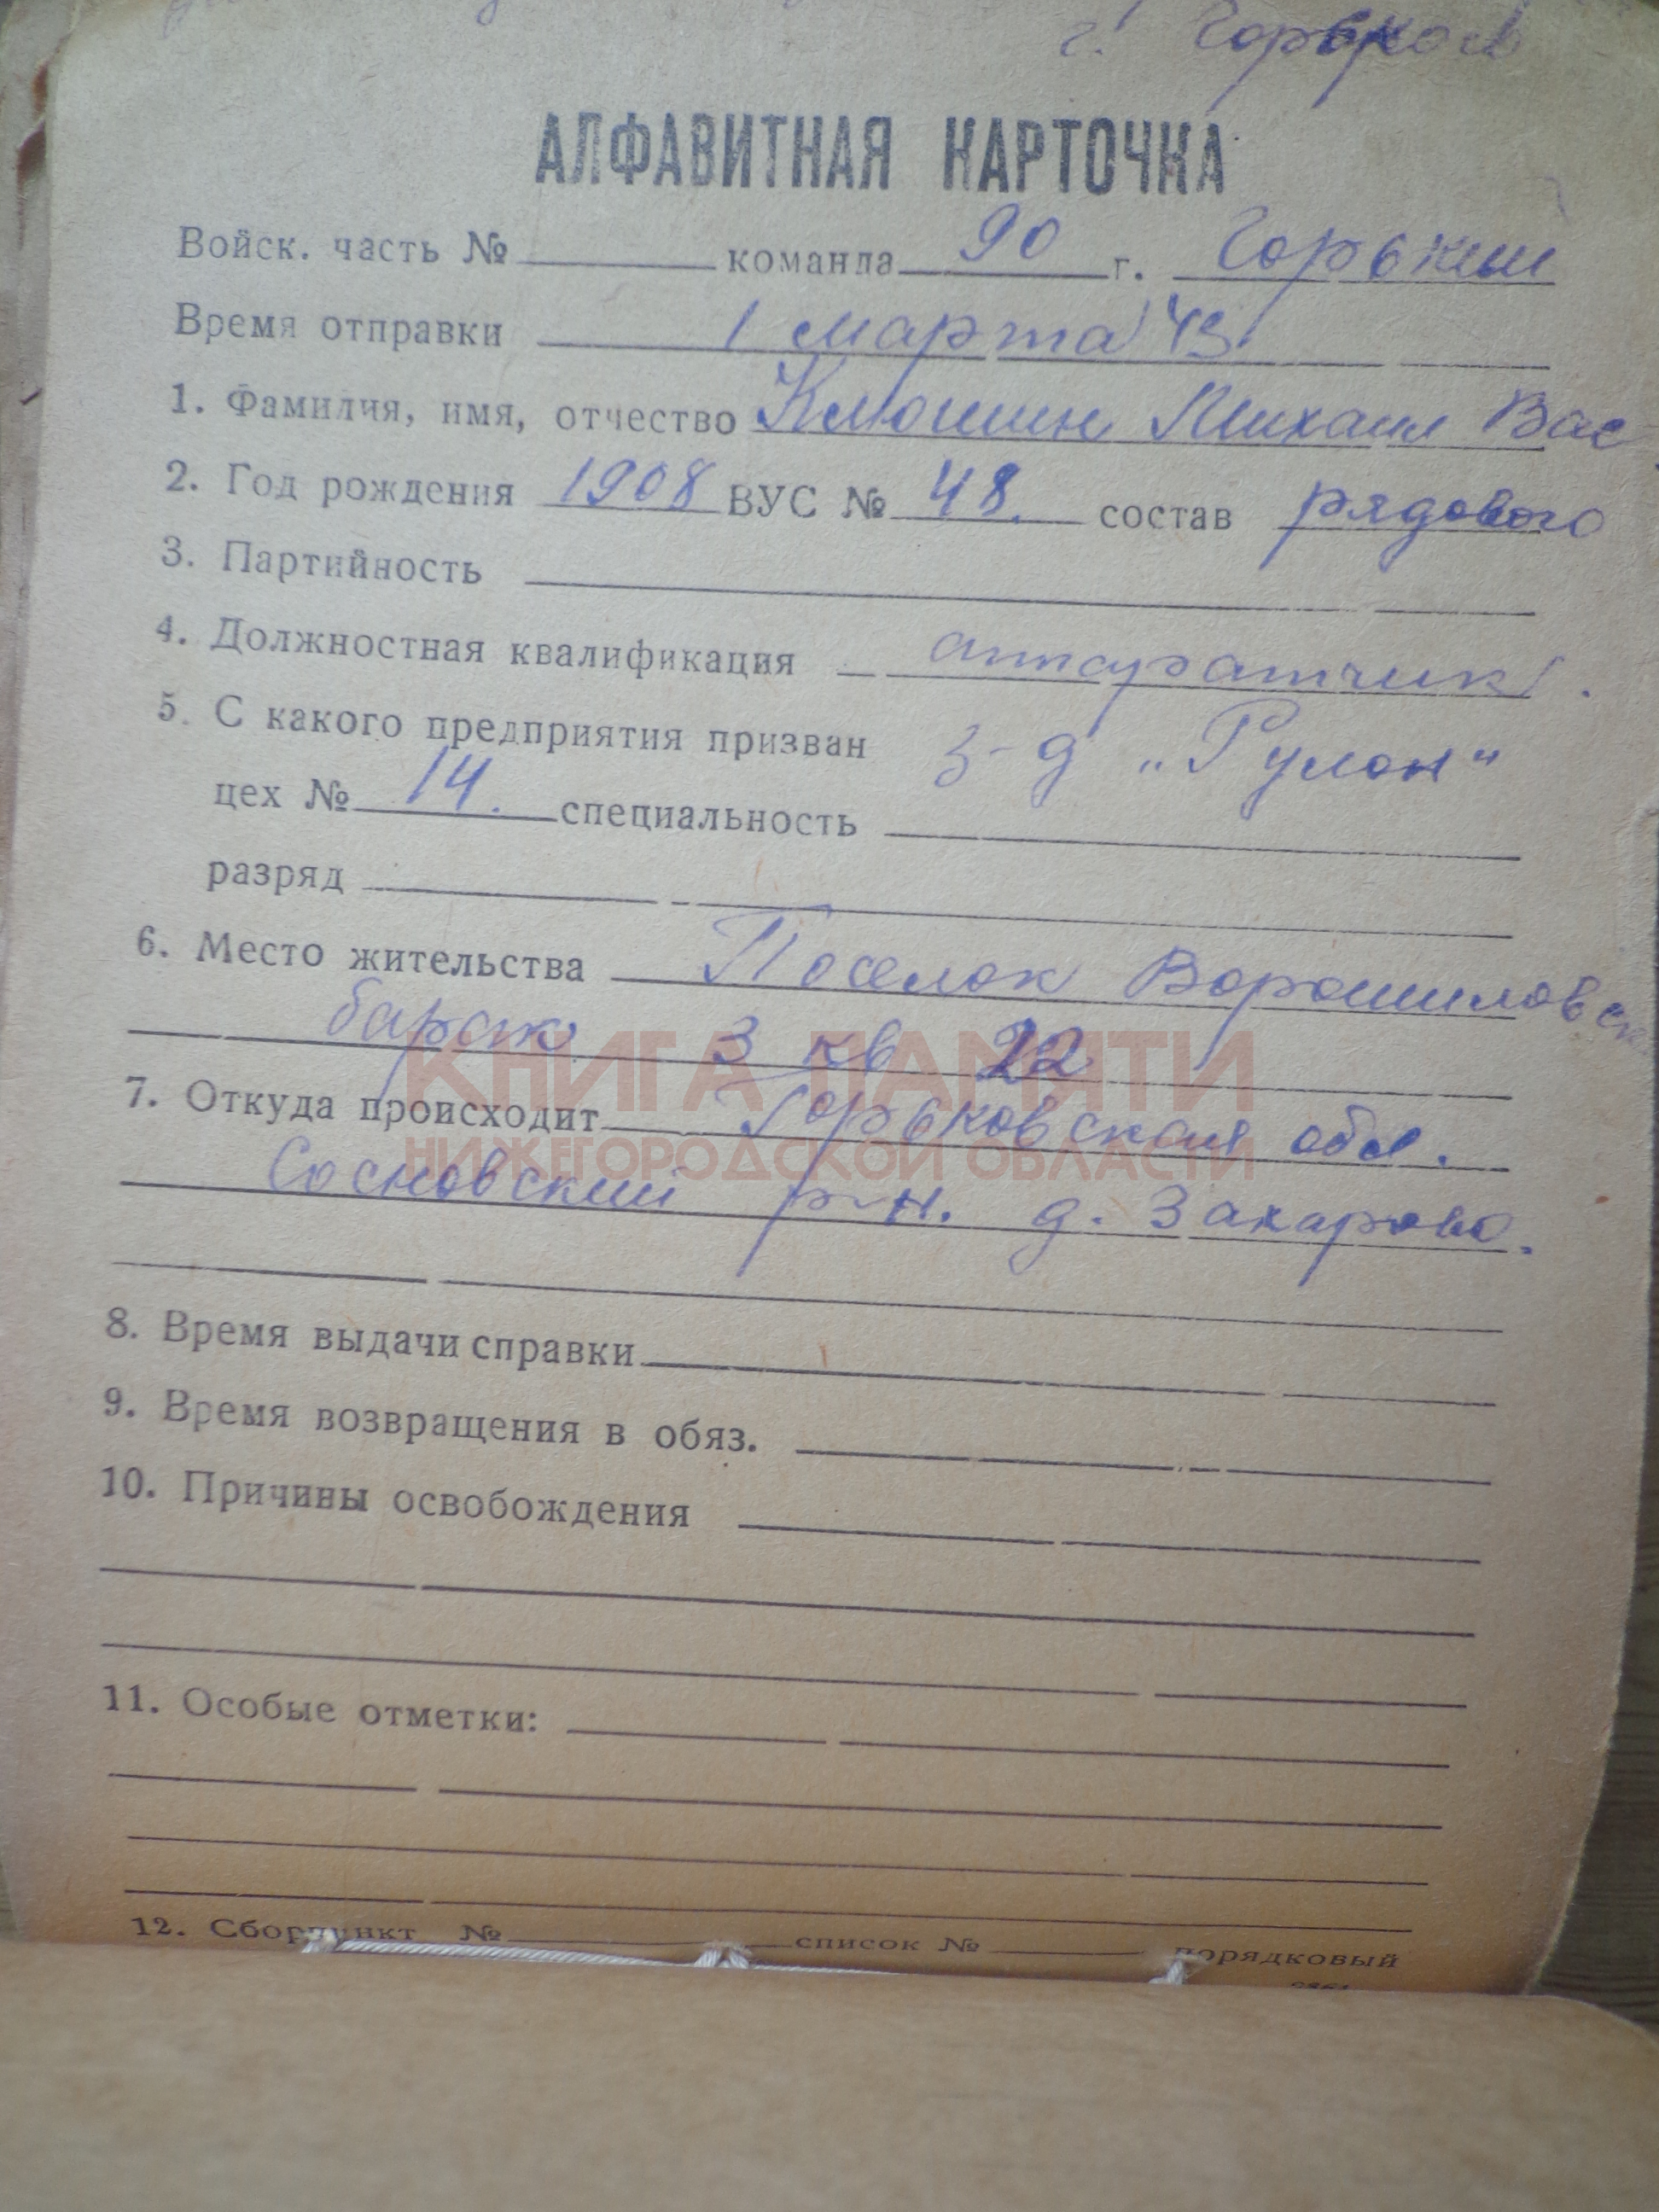 г. Горьком
АЛФАВИТНАЯ КАРТОЧКА
Войск. часть № команда 90 г. Горький
Время отправки 1 марта 43
1. Фамилия, имя, отчество Клюшин Михаил Вас
2. Год рождения 1908 ВУС № 48. состав рядового
3. Партийность
4. Должностная квалификация аппаратчик.
5. С какого предприятия призван з-д „Рулон“
цех № 14. специальность
разряд
6. Место жительства Поселок Ворошиловск
барак 3 кв 22
КНИГА ПАМЯТИ
7. Откуда происходит Горьковская обл.
НИЖЕГОРОДСКОЙ ОБЛАСТИ
Сосновский р-н. д. Захарово.
8. Время выдачи справки
9. Время возвращения в обяз.
10. Причины освобождения
11. Особые отметки:
12. Сборпункт № список № порядковый